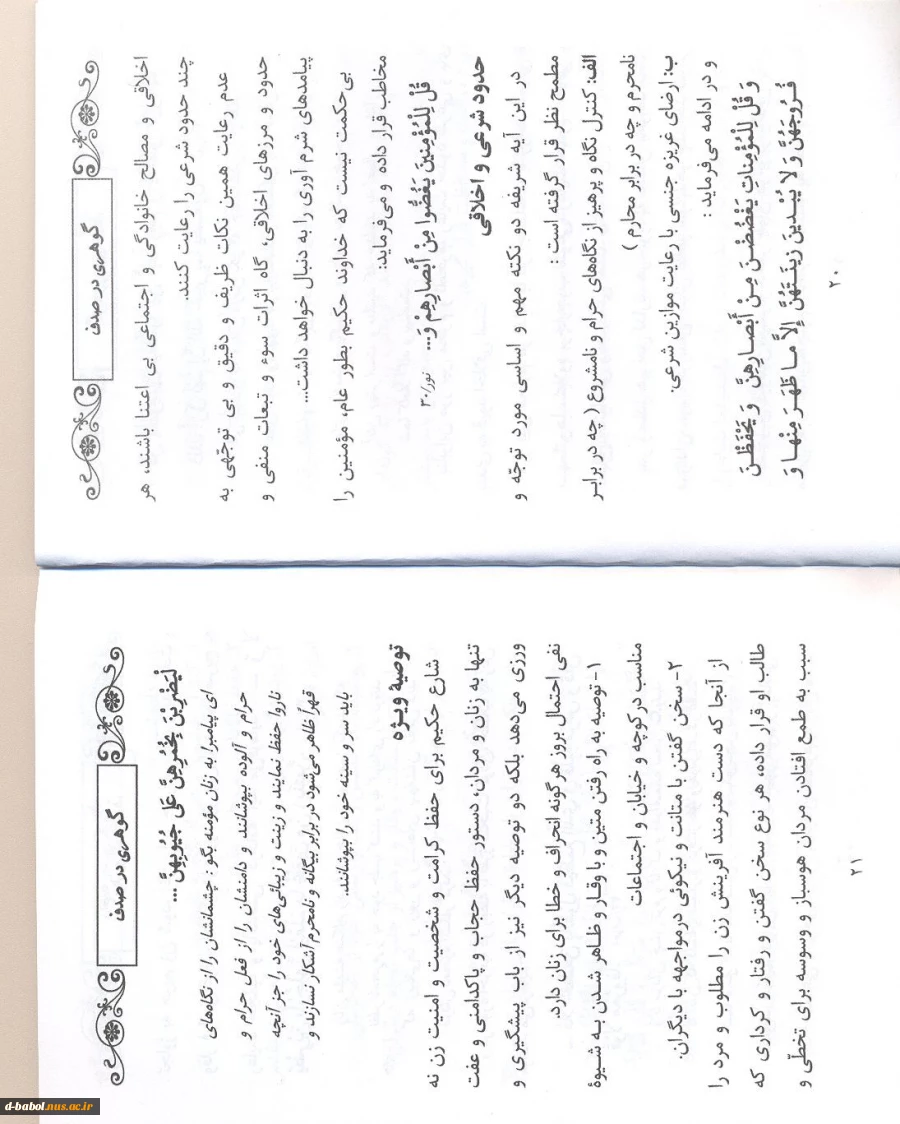 گوهری در صدف
اخلاقی و مصالح خانوادگی و اجتماعی بی اعتنا باشند، هر
چند حدود شرعی را رعایت کنند.
عدم رعایت همین نکات ظریف و دقیق و بی توجّهی به
حدود و مرزهای اخلاقی، گاه اثرات سوء و تبعات منفی و
پیامدهای شرم آوری را به دنبال خواهد داشت...
بی‌حکمت نیست که خداوند حکیم بطور عام، مؤمنین را
مخاطب قرار داده و می‌فرماید:
قُلْ لِلْمُؤْمِنِینَ یَغُضُّوا مِنْ أَبْصَارِهِمْ وَ... نور/۳۰
حدود شرعی و اخلاقی
در این آیه شریفه دو نکته مهم و اساسی مورد توجّه و
مطمح نظر قرار گرفته است :
الف: کنترل نگاه و پرهیز از نگاه‌های حرام و نامشروع ( چه در برابر
نامحرم و چه در برابر محارم )
ب: ارضای غریزه جنسی با رعایت موازین شرعی.
و در ادامه می‌فرماید :
وَ قُلْ لِلْمُؤْمِنَاتِ یَغْضُضْنَ مِنْ أَبْصَارِهِنَّ وَ یَحْفَظْنَ
فُرُوجَهُنَّ وَ لَا یُبْدِینَ زِینَتَهُنَّ إِلَّا مَا ظَهَرَ مِنْهَا وَ
۲۰
گوهری در صدف
لْیَضْرِبْنَ بِخُمُرِهِنَّ عَلَی جُیُوبِهِنَّ ...
ای پیامبر! به زنان مؤمنه بگو : چشمانشان را از نگاه‌های
حرام و آلوده بپوشانند و دامنشان را از فعل حرام و
ناروا حفظ نمایند و زینت و زیبائی‌های خود را جز آنچه
قهراً ظاهر می‌شود در برابر بیگانه و نامحرم آشکار نسازند و
باید سر و سینه خود را بپوشانند.
توصیهٔ ویژه
شارع حکیم برای حفظ کرامت و شخصیت و امنیت زن نه
تنها به زنان و مردان، دستور حفظ حجاب و پاکدامنی و عفت
ورزی می‌دهد بلکه دو توصیه دیگر نیز از باب پیشگیری و
نفی احتمال بروز هرگونه انحراف و خطا برای زنان دارد.
۱- توصیه به راه رفتن متین و با وقار و ظاهر شدن به شیوهٔ
مناسب در کوچه و خیابان و اجتماعات
۲- سخن گفتن با متانت و نیکوئی در مواجهه با دیگران.
از آنجا که دست هنرمند آفرینش زن را مطلوب و مرد را
طالب او قرار داده، هر نوع سخن گفتن و رفتار و کرداری که
سبب به طمع افتادن مردان هوسباز و وسوسه برای تخطّی و
۲۱
d-babol.nus.ac.ir